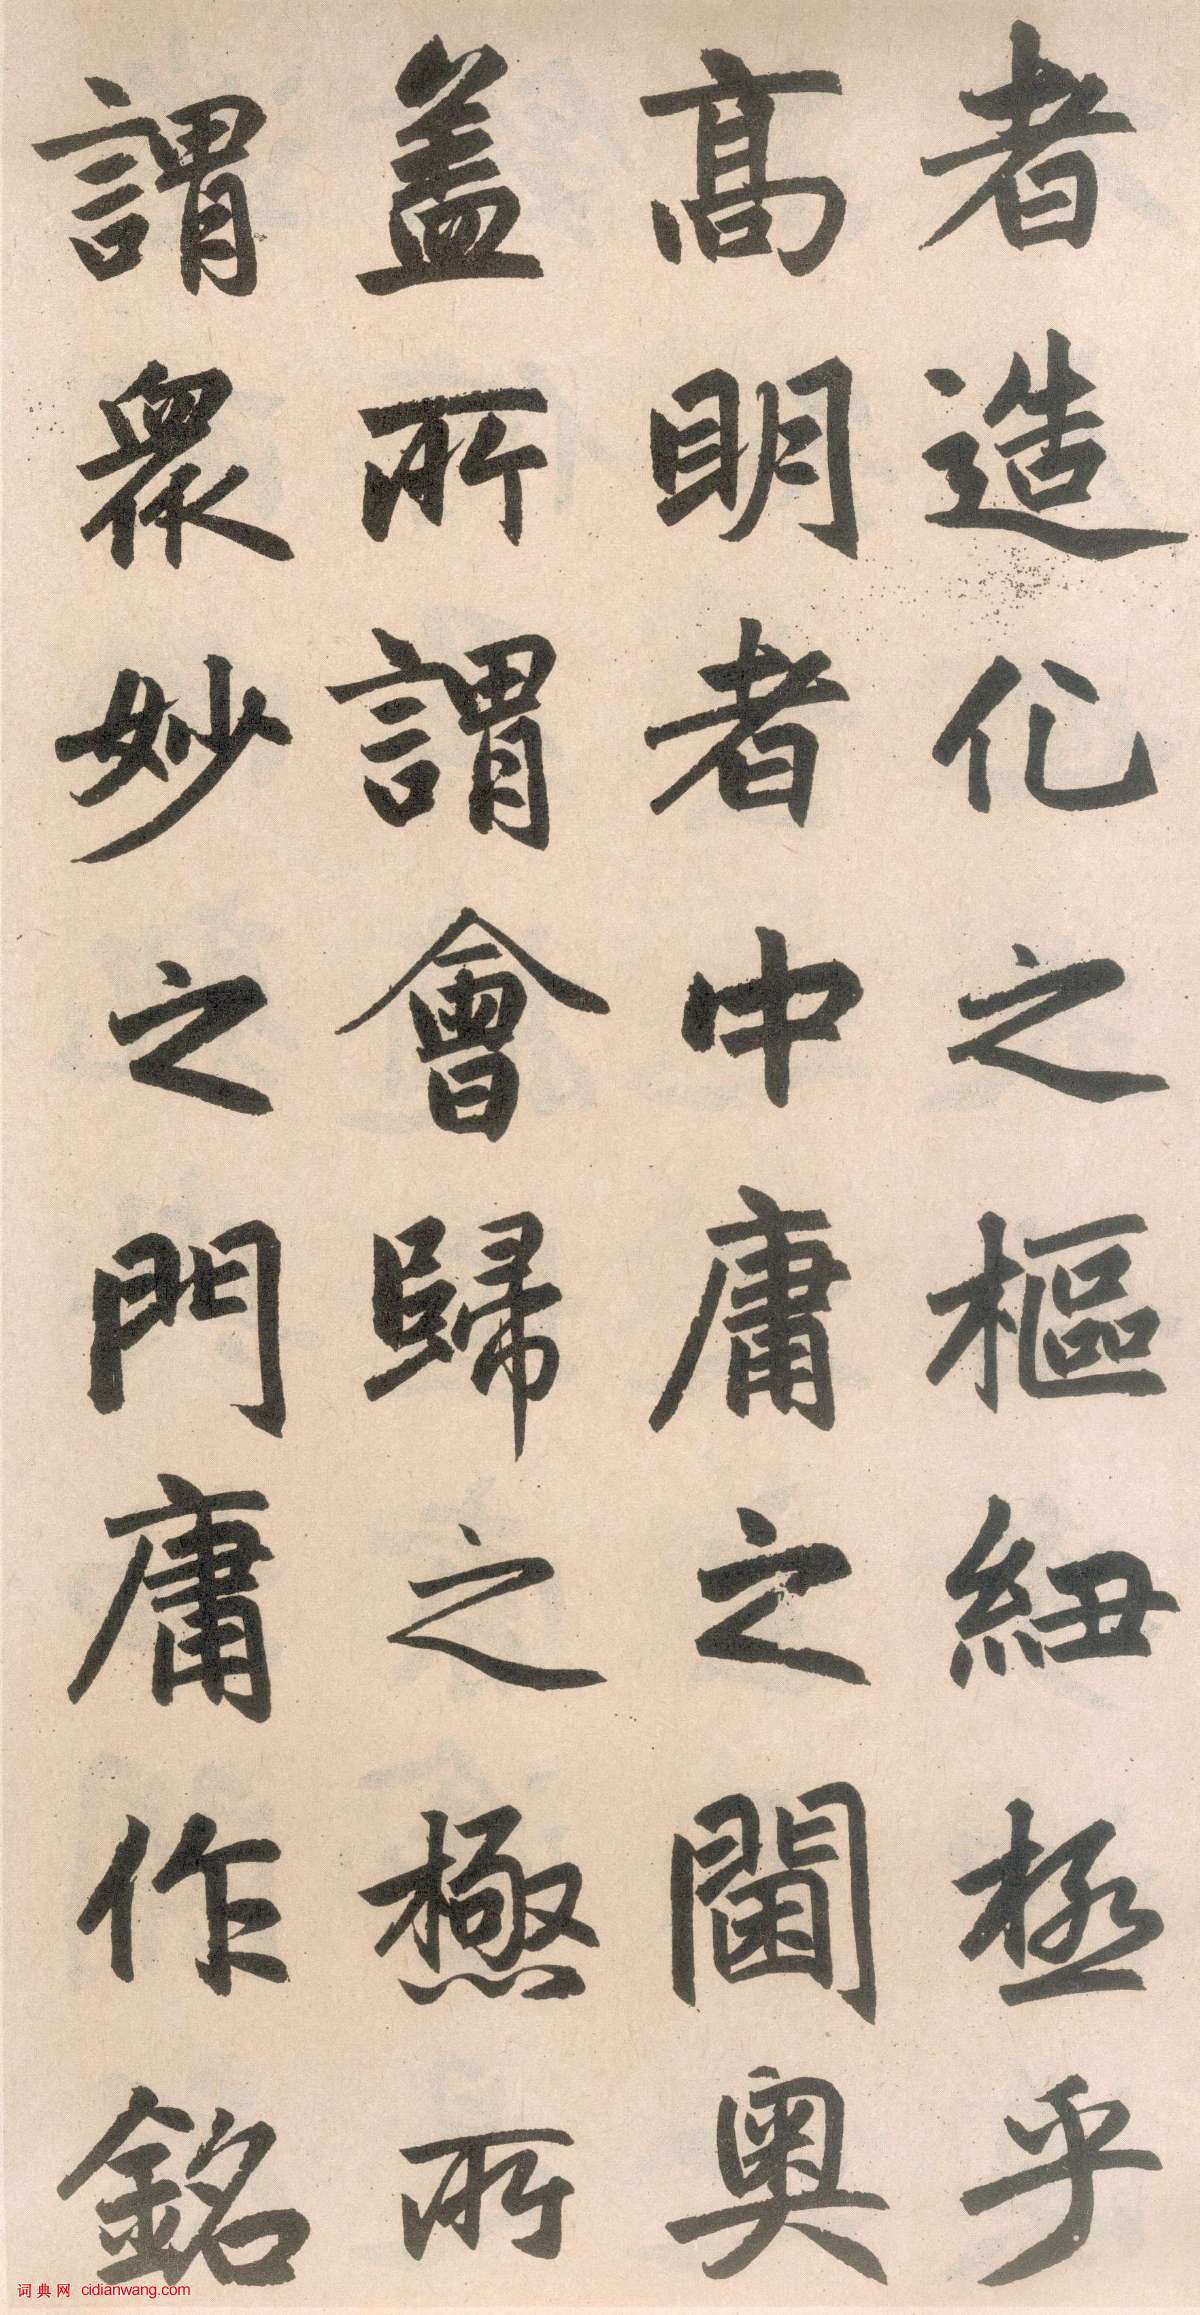 者造化之樞紐極乎
高明者中庸之閫奧
蓋所謂會歸之極所
謂衆妙之門庸作銘
词典网 cidianwang.com